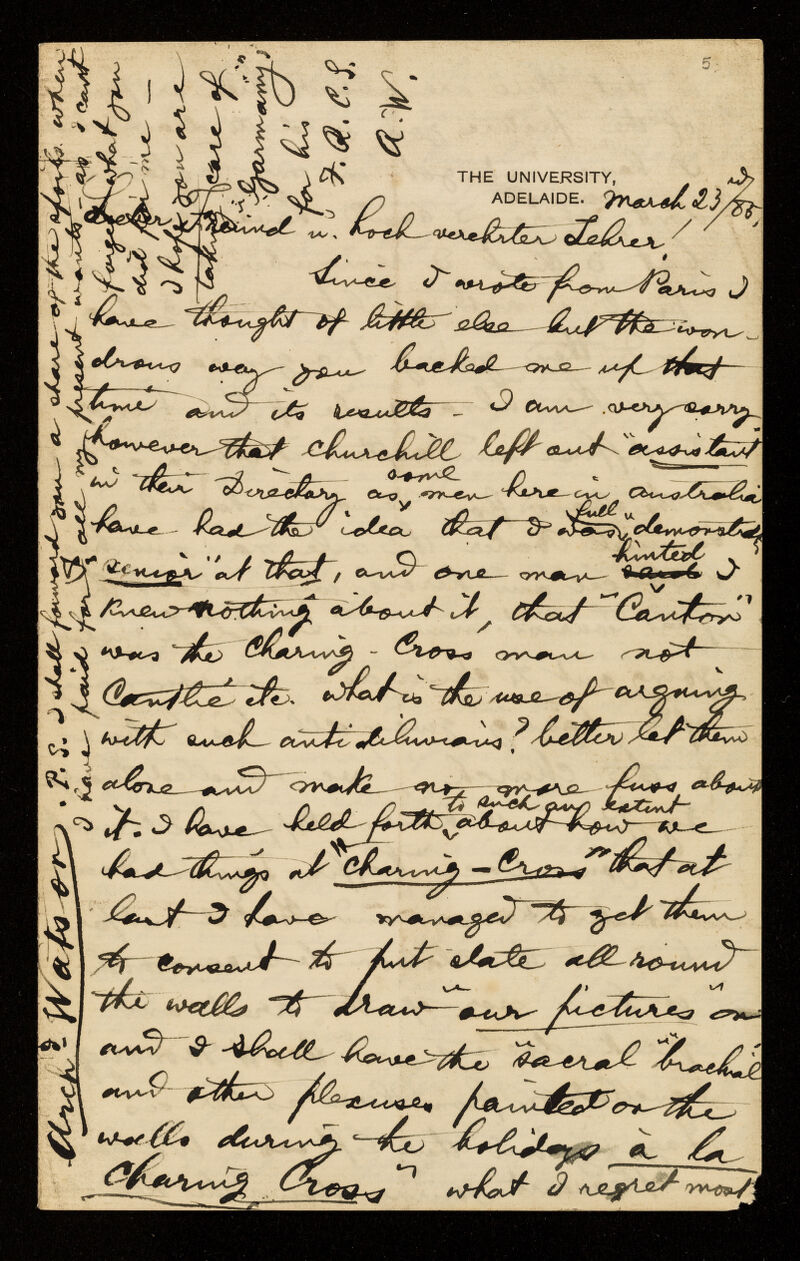 5
THE UNIVERSITY,
ADELAIDE. March, 23rd/85,
Lieber Freund u. hoch verehrter Lehrer!
Since I wrote from Paris I
have thought of little else but the won-
drous way you backed me up that
time and its results - I am very sorry
however that Churchill left out "assistant"
in their Directory as some men here in australia
have had the idea that I was full "demonstrator
senior" at that, and one man hinted I
knew nothing about it, that "Canton"
was the Charing-Cross man not
Cantlie etc. what is the use of arguing
with such antidiluvians? better let them
alone and make no more fuss about
it. I have held forth to such an extent about how we
had things at "Charing-Cross" that at
last I have managed to get them
to consent to put slate all round
the walls to draw "our pictures" on
and I shall have the "sacral" "brachial"
and other plexuses painted on the
walls during the holidays à la
Charing Cross" what I regret most
Archd Watson. P.S. I shall forward you a share of the spoils when
I have paid for all my present wants - as I can't
forget what you
did for me -
I hope you are
taking care of
"Garmany"
for his
F.R.C.S.
A.W.